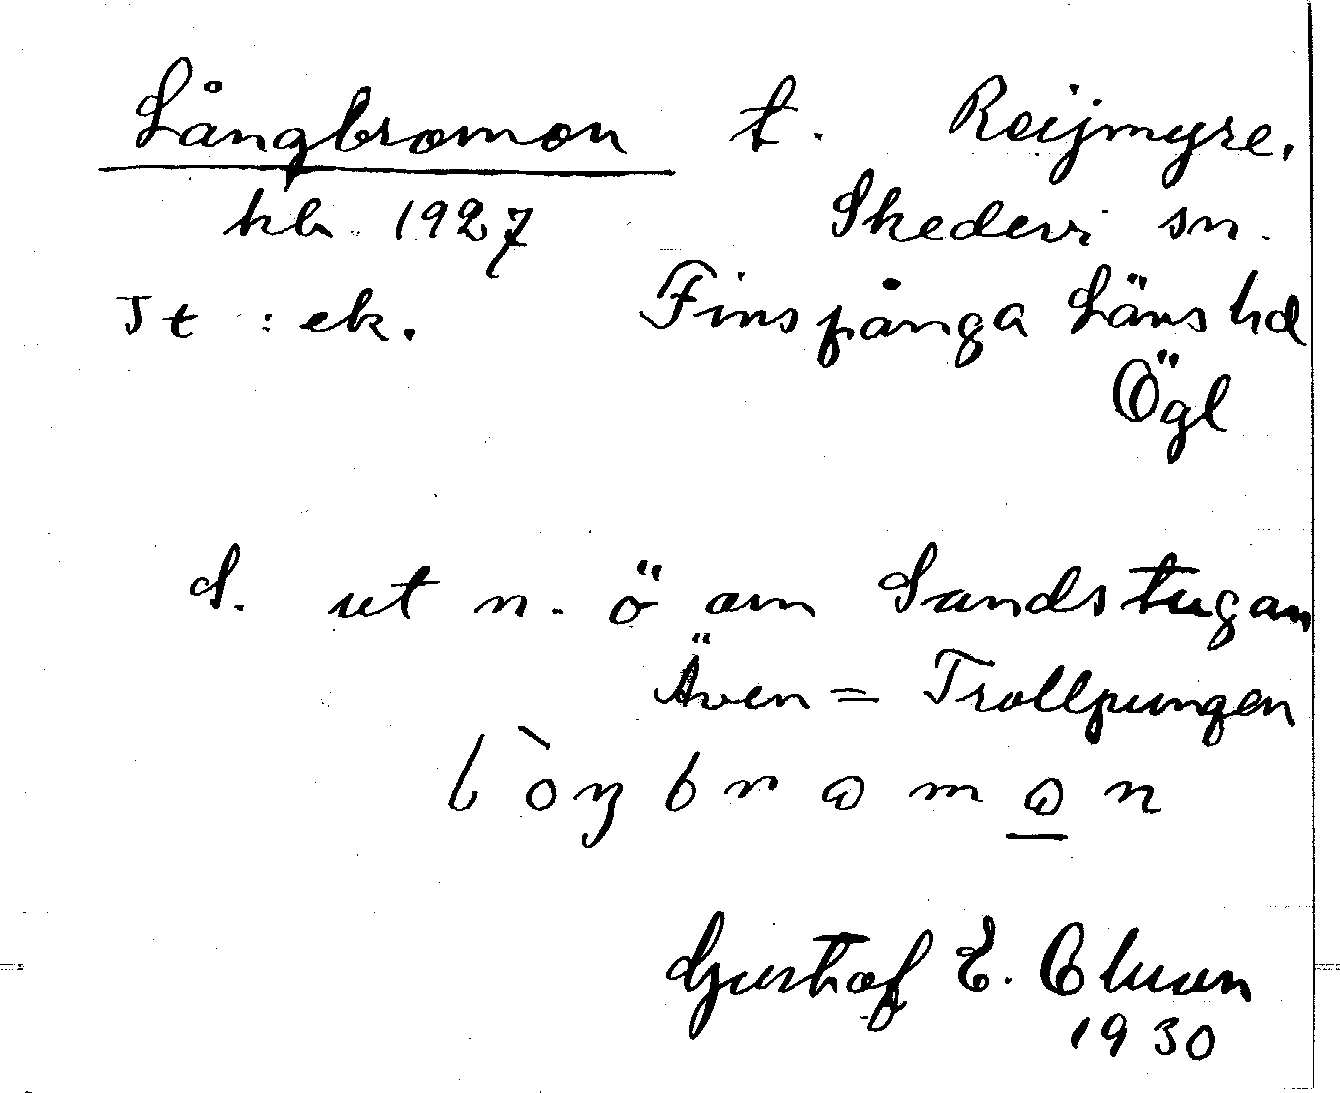 Långbromon t. Reijmyre.
hb. 1927 Skedevi sn.
Jt : ek. Finspånga Läns hd
Ögl
S. ut n. ö om Sandstugan
Även = Trollpungen
Gustaf E.
1930